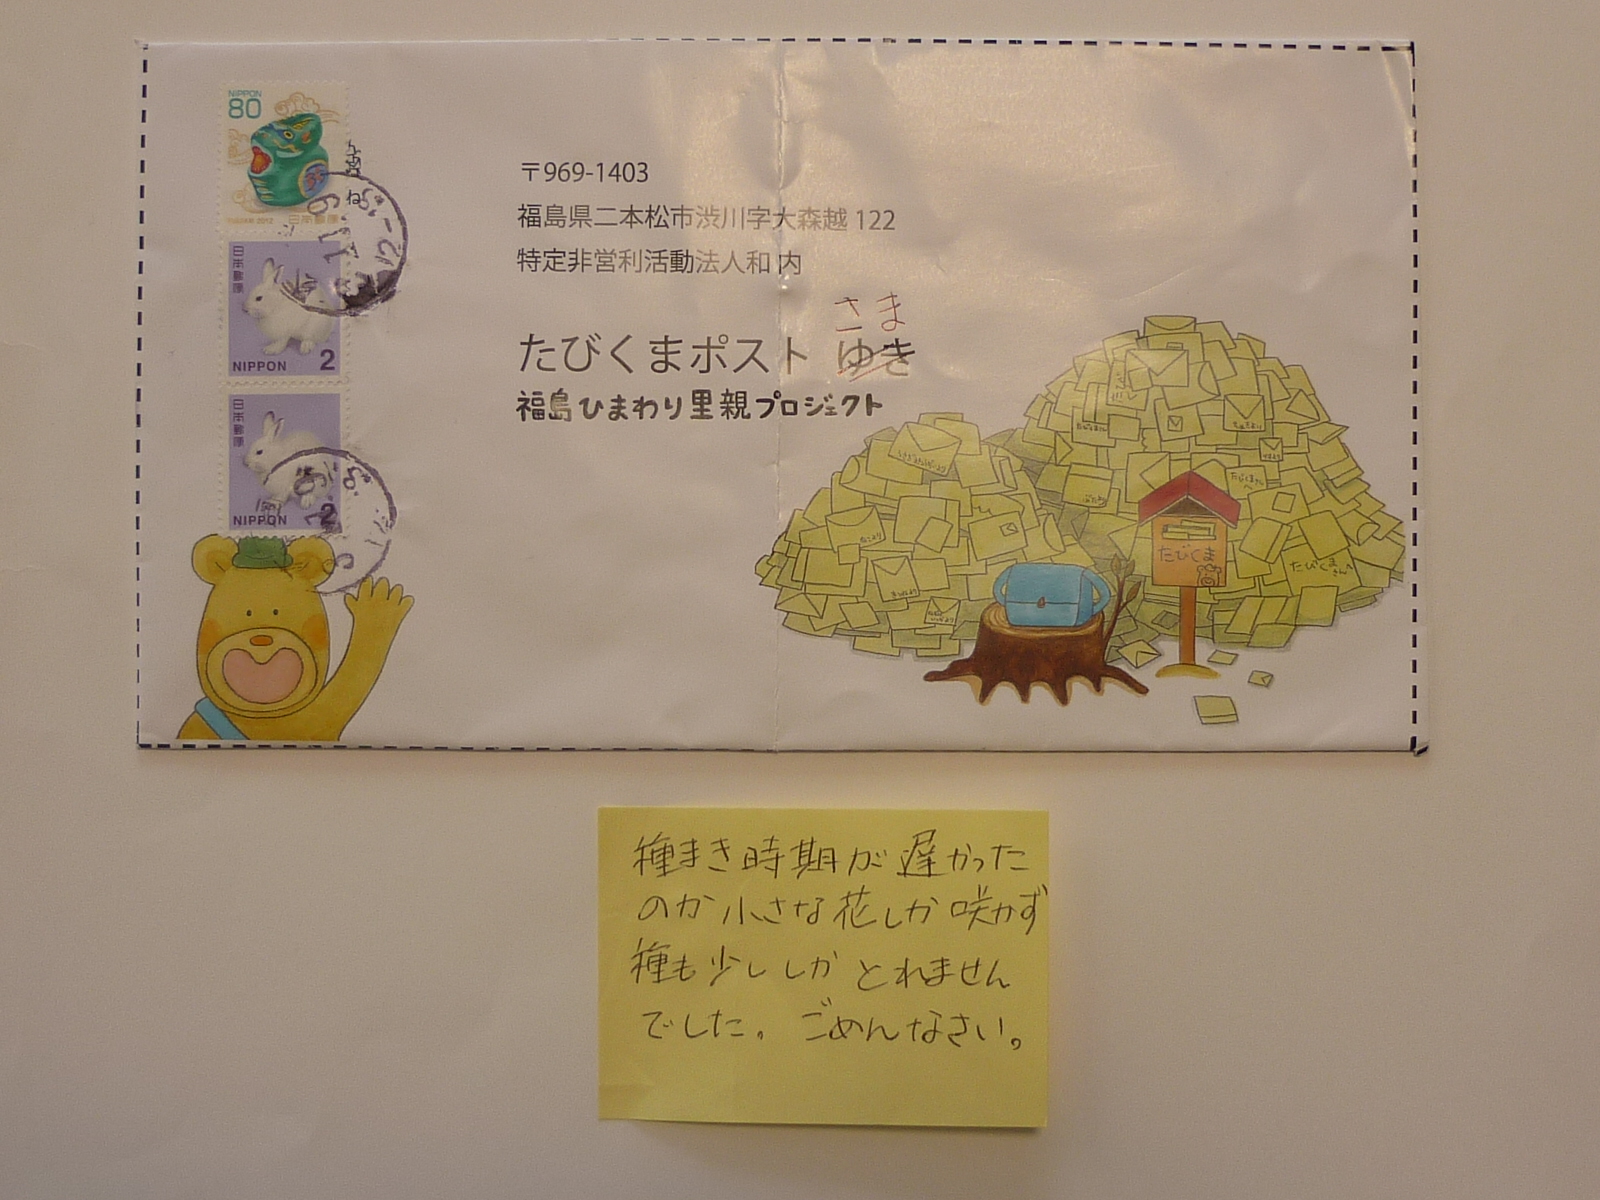 NIPPON
80
日本郵便
日本郵便
NIPPON 2
日本郵便
NIPPON 2
〒969-1403
福島県二本松市渋川字大森越 122
特定非営利活動法人和 内
さま
たびくまポスト ゆき
福島ひまわり里親プロジェクト
たびくま
たびくまさんへ
種まき時期が遅かった
のか小さな花しか咲かず
種も少ししかとれません
でした。ごめんなさい。